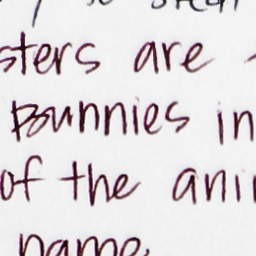 sters are
Bunnies in
of the ani
name